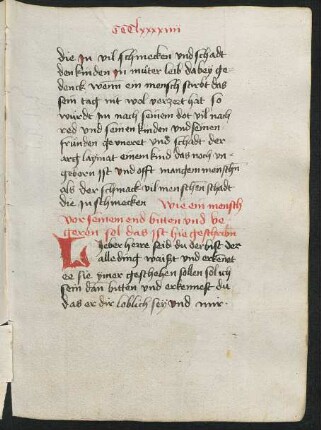 CCClxxxxiiii
die Jn vil schmecken vnd schadt
den kinden Jn muter leib da bey ge
denck wenn ein mensch stirbt das
sein tag nit wol verzert hat so
wurdt Jm nach seinem dot vil nach
red vnd seinen kinden vnd seinen
frunden geuneret vnd schadt der
arg laymat einem kind das noch vn
geborn ist vnd offt mangem menschen
als der schmack vil menschen schadt
die Jn schmecken Wie ein mensch
vor seinem end bitten vnd be
geren sol das ist hie geschriben
Lieber herre seid du der bist der
alle ding waist vnd erkenest
ee sie ymer geschehen sollen sol ich
sein dan bitten vnd erkennest du
das er dir loblich sey vnd mir